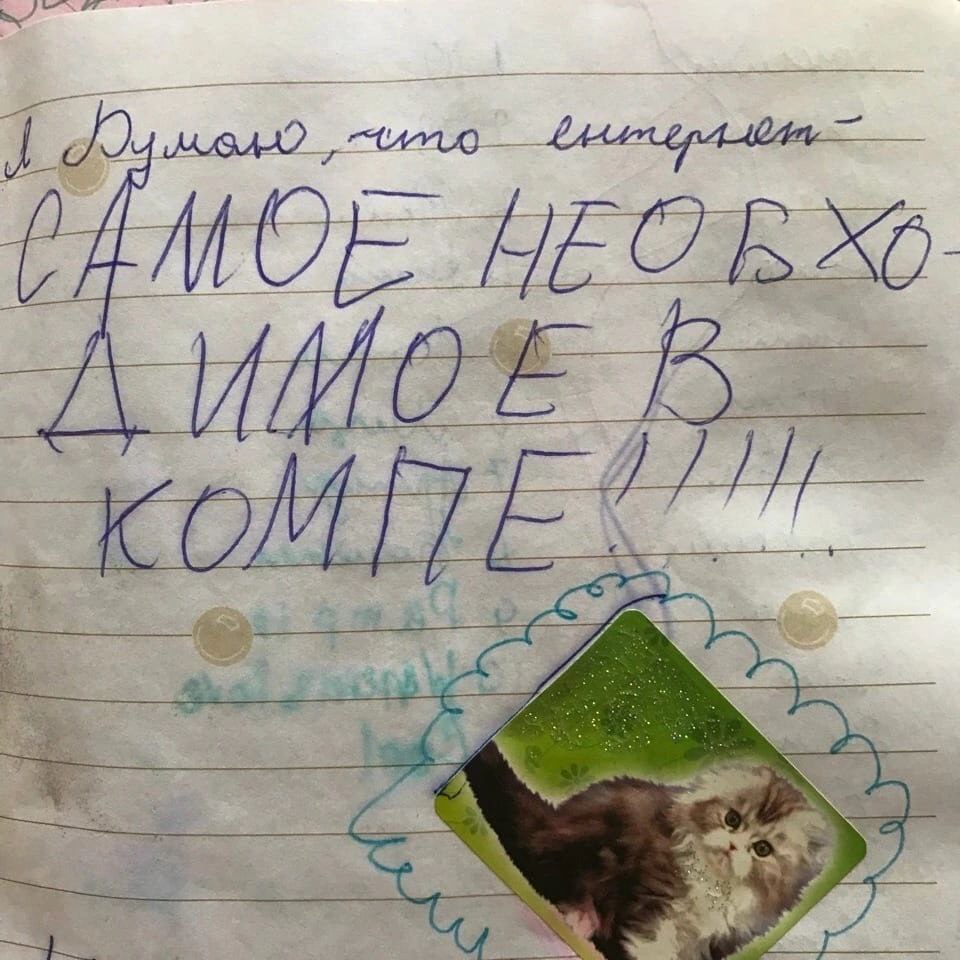 Я Думаю, что ентернет-
САМОЕ НЕОБХО-
ДИМОЕ В
КОМПЕ!!!!!